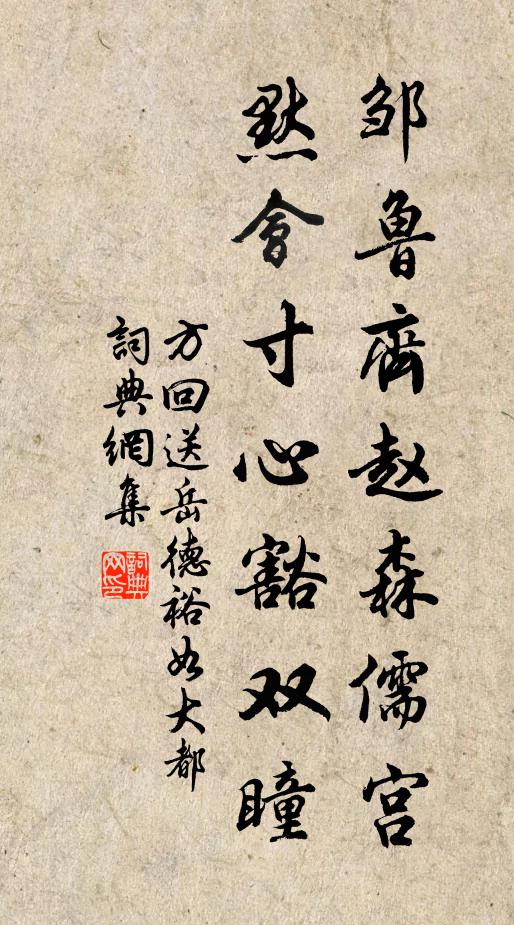 邹鲁齊赵森儒宫
默會寸心豁双瞳
方回送岳德裕如大都
詞典網集
詞典网印